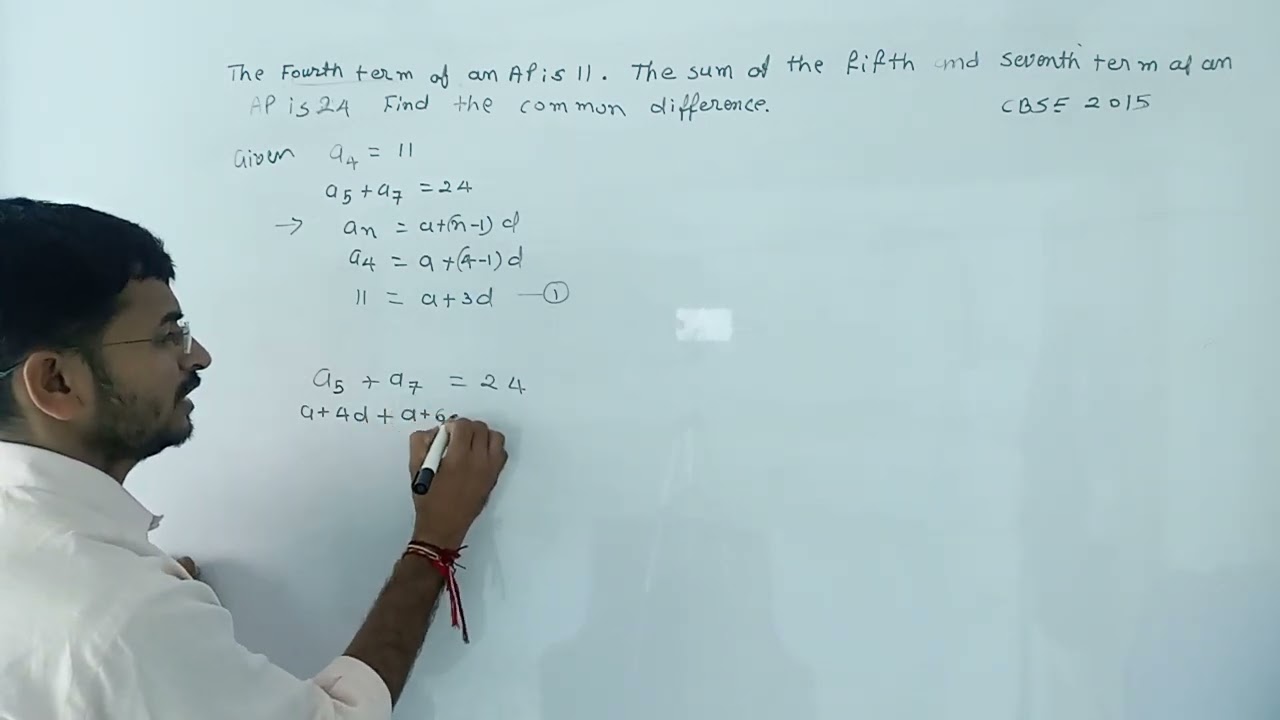 The Fourth term of an AP is 11. The sum of the fifth and seventh term of an
AP is 24 Find the common difference. CBSE 2015
Given a₄ = 11
a₅ + a₇ = 24
→ an = a+(n-1) d
a₄ = a +(4-1) d
11 = a + 3d —①
a₅ + a₇ = 24
a + 4d + a + 6